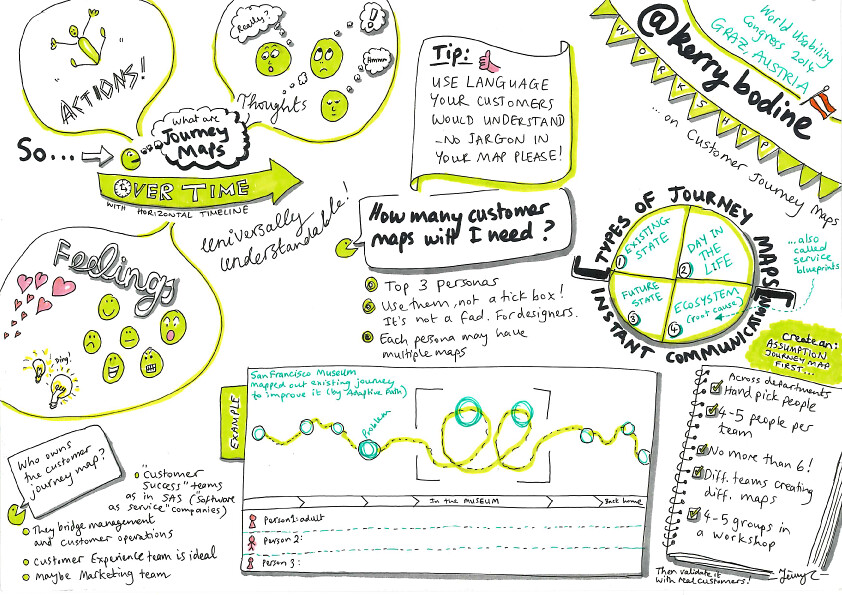 "ACTIONS!"
Really?
!!
Hmmm
Thoughts
So...
What are
Journey
Maps
OVER TIME
WITH HORIZONTAL TIMELINE
universally
understandable!
Feelings
Ding!
Tip:
USE LANGUAGE
YOUR CUSTOMERS
WOULD UNDERSTAND
- NO JARGON IN
YOUR MAP PLEASE!
World Usability
Congress 2014
GRAZ, AUSTRIA
@kerry bodine
WORKSHOP
... on Customer Journey Maps
How many customer
maps will I need?
Top 3 Personas
Use them, not a tick box!
It's not a fad. For designers.
Each persona may have
multiple maps
TYPES OF JOURNEY MAPS
INSTANT COMMUNICATION
1 EXISTING
STATE
2 DAY IN
THE
LIFE
3 FUTURE
STATE
4 ECOSYSTEM
(root cause)
...also
called
service
blueprints
Create an:
ASSUMPTION
JOURNEY MAP
FIRST...
Across departments
Hand pick people
4-5 people per
team
No more than 6!
Diff. teams creating
diff. maps
4-5 groups in
a workshop
Then validate it
with real customers!
EXAMPLE
San Francisco Museum
mapped out existing journey
to improve it (by Adaptive Path)
Problem
In the MUSEUM
Back home
Person 1: adult
Person 2:
Person 3:
Who owns
the customer
journey map?
"Customer
Success" teams
as in SAS ("Software
as service" companies)
They bridge management
and customer operations
Customer Experience team is ideal
Maybe Marketing team